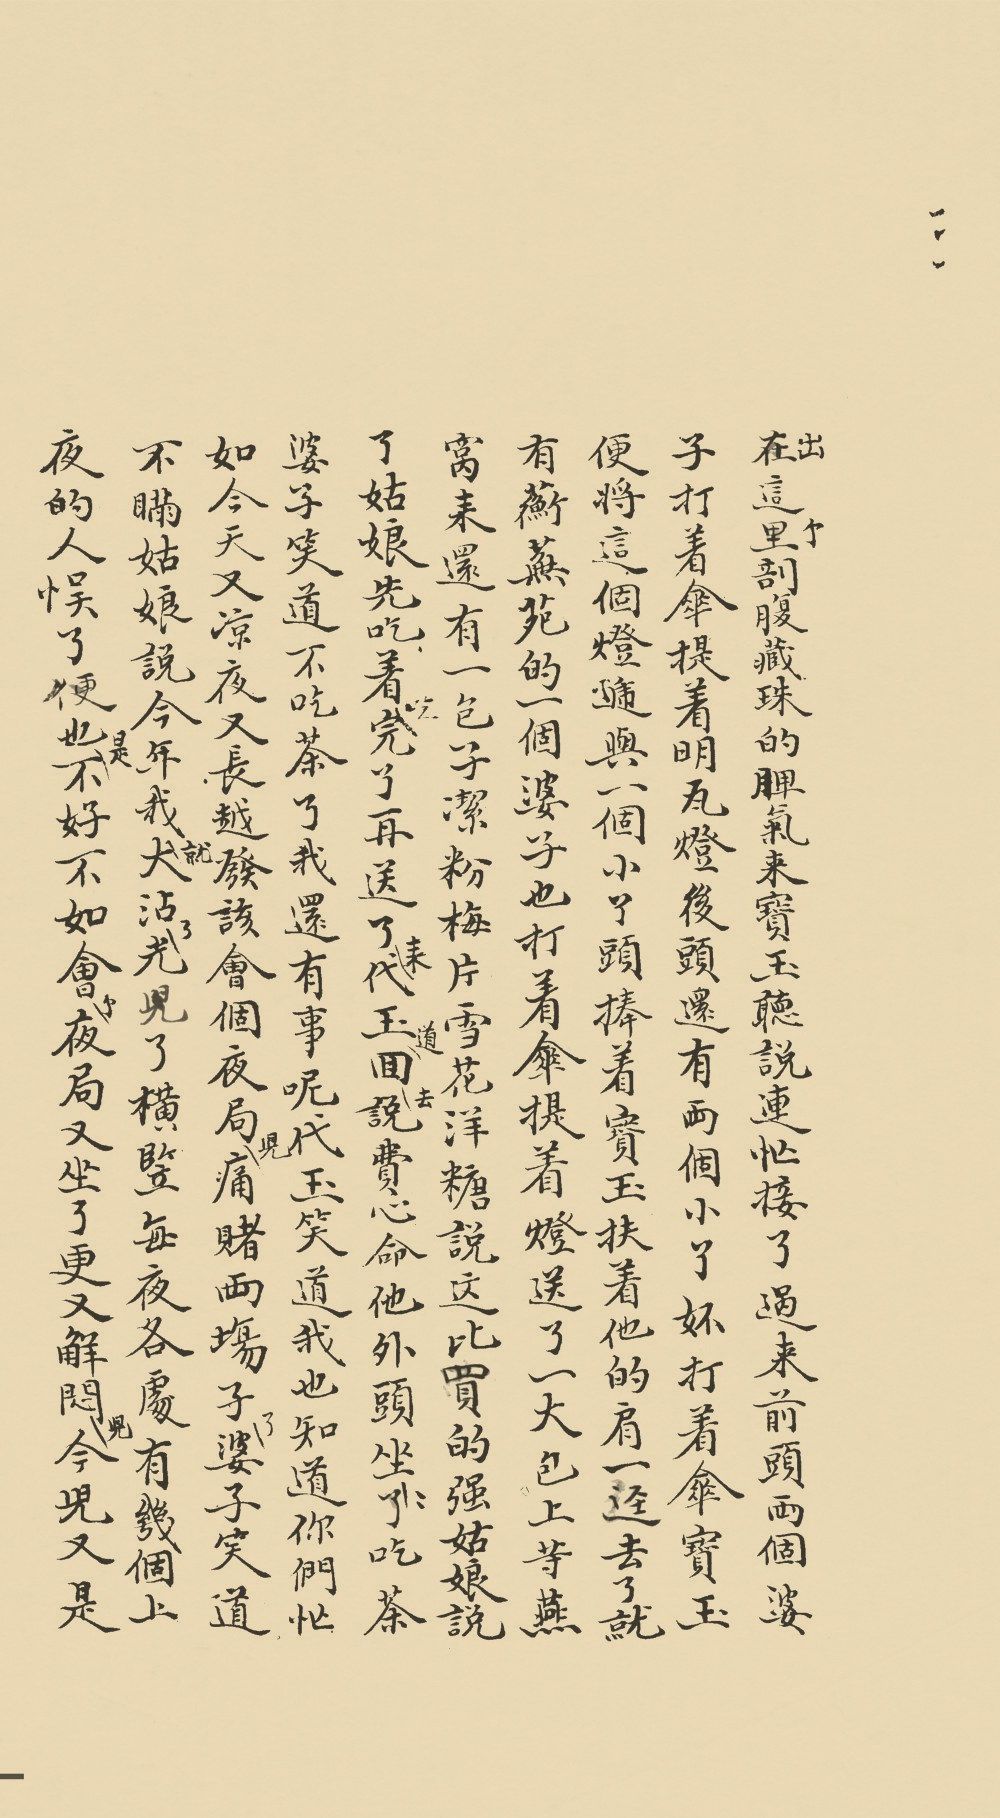 在出這里剖腹藏珠的脾氣来寳玉聽說連忙接了過来前頭両個婆
子打着傘提着明瓦燈後頭還有両個小丫妚打着傘寳玉
便将這個燈遞與一個小丫頭捧着寳玉扶着他的肩一迳去了就
有蘅蕪苑的一個婆子也打着傘提着燈送了一大包上等燕
窩来還有一包子潔粉梅片雪花洋糖說这比買的强姑娘說
了姑娘先吃着完吃了再送了来代玉回道說去費心命他外頭坐了吃茶
婆子笑道不吃茶了我還有事呢代玉笑道我也知道你們忙
如今天又凉夜又長越發該會個夜局兒痛賭両塲子了婆子笑道
不瞞姑娘說今年我大就沾了光兒了橫竪每夜各處有幾個上
夜的人悞了更也是不好不如會夜局又坐了更又解悶兒今児又是